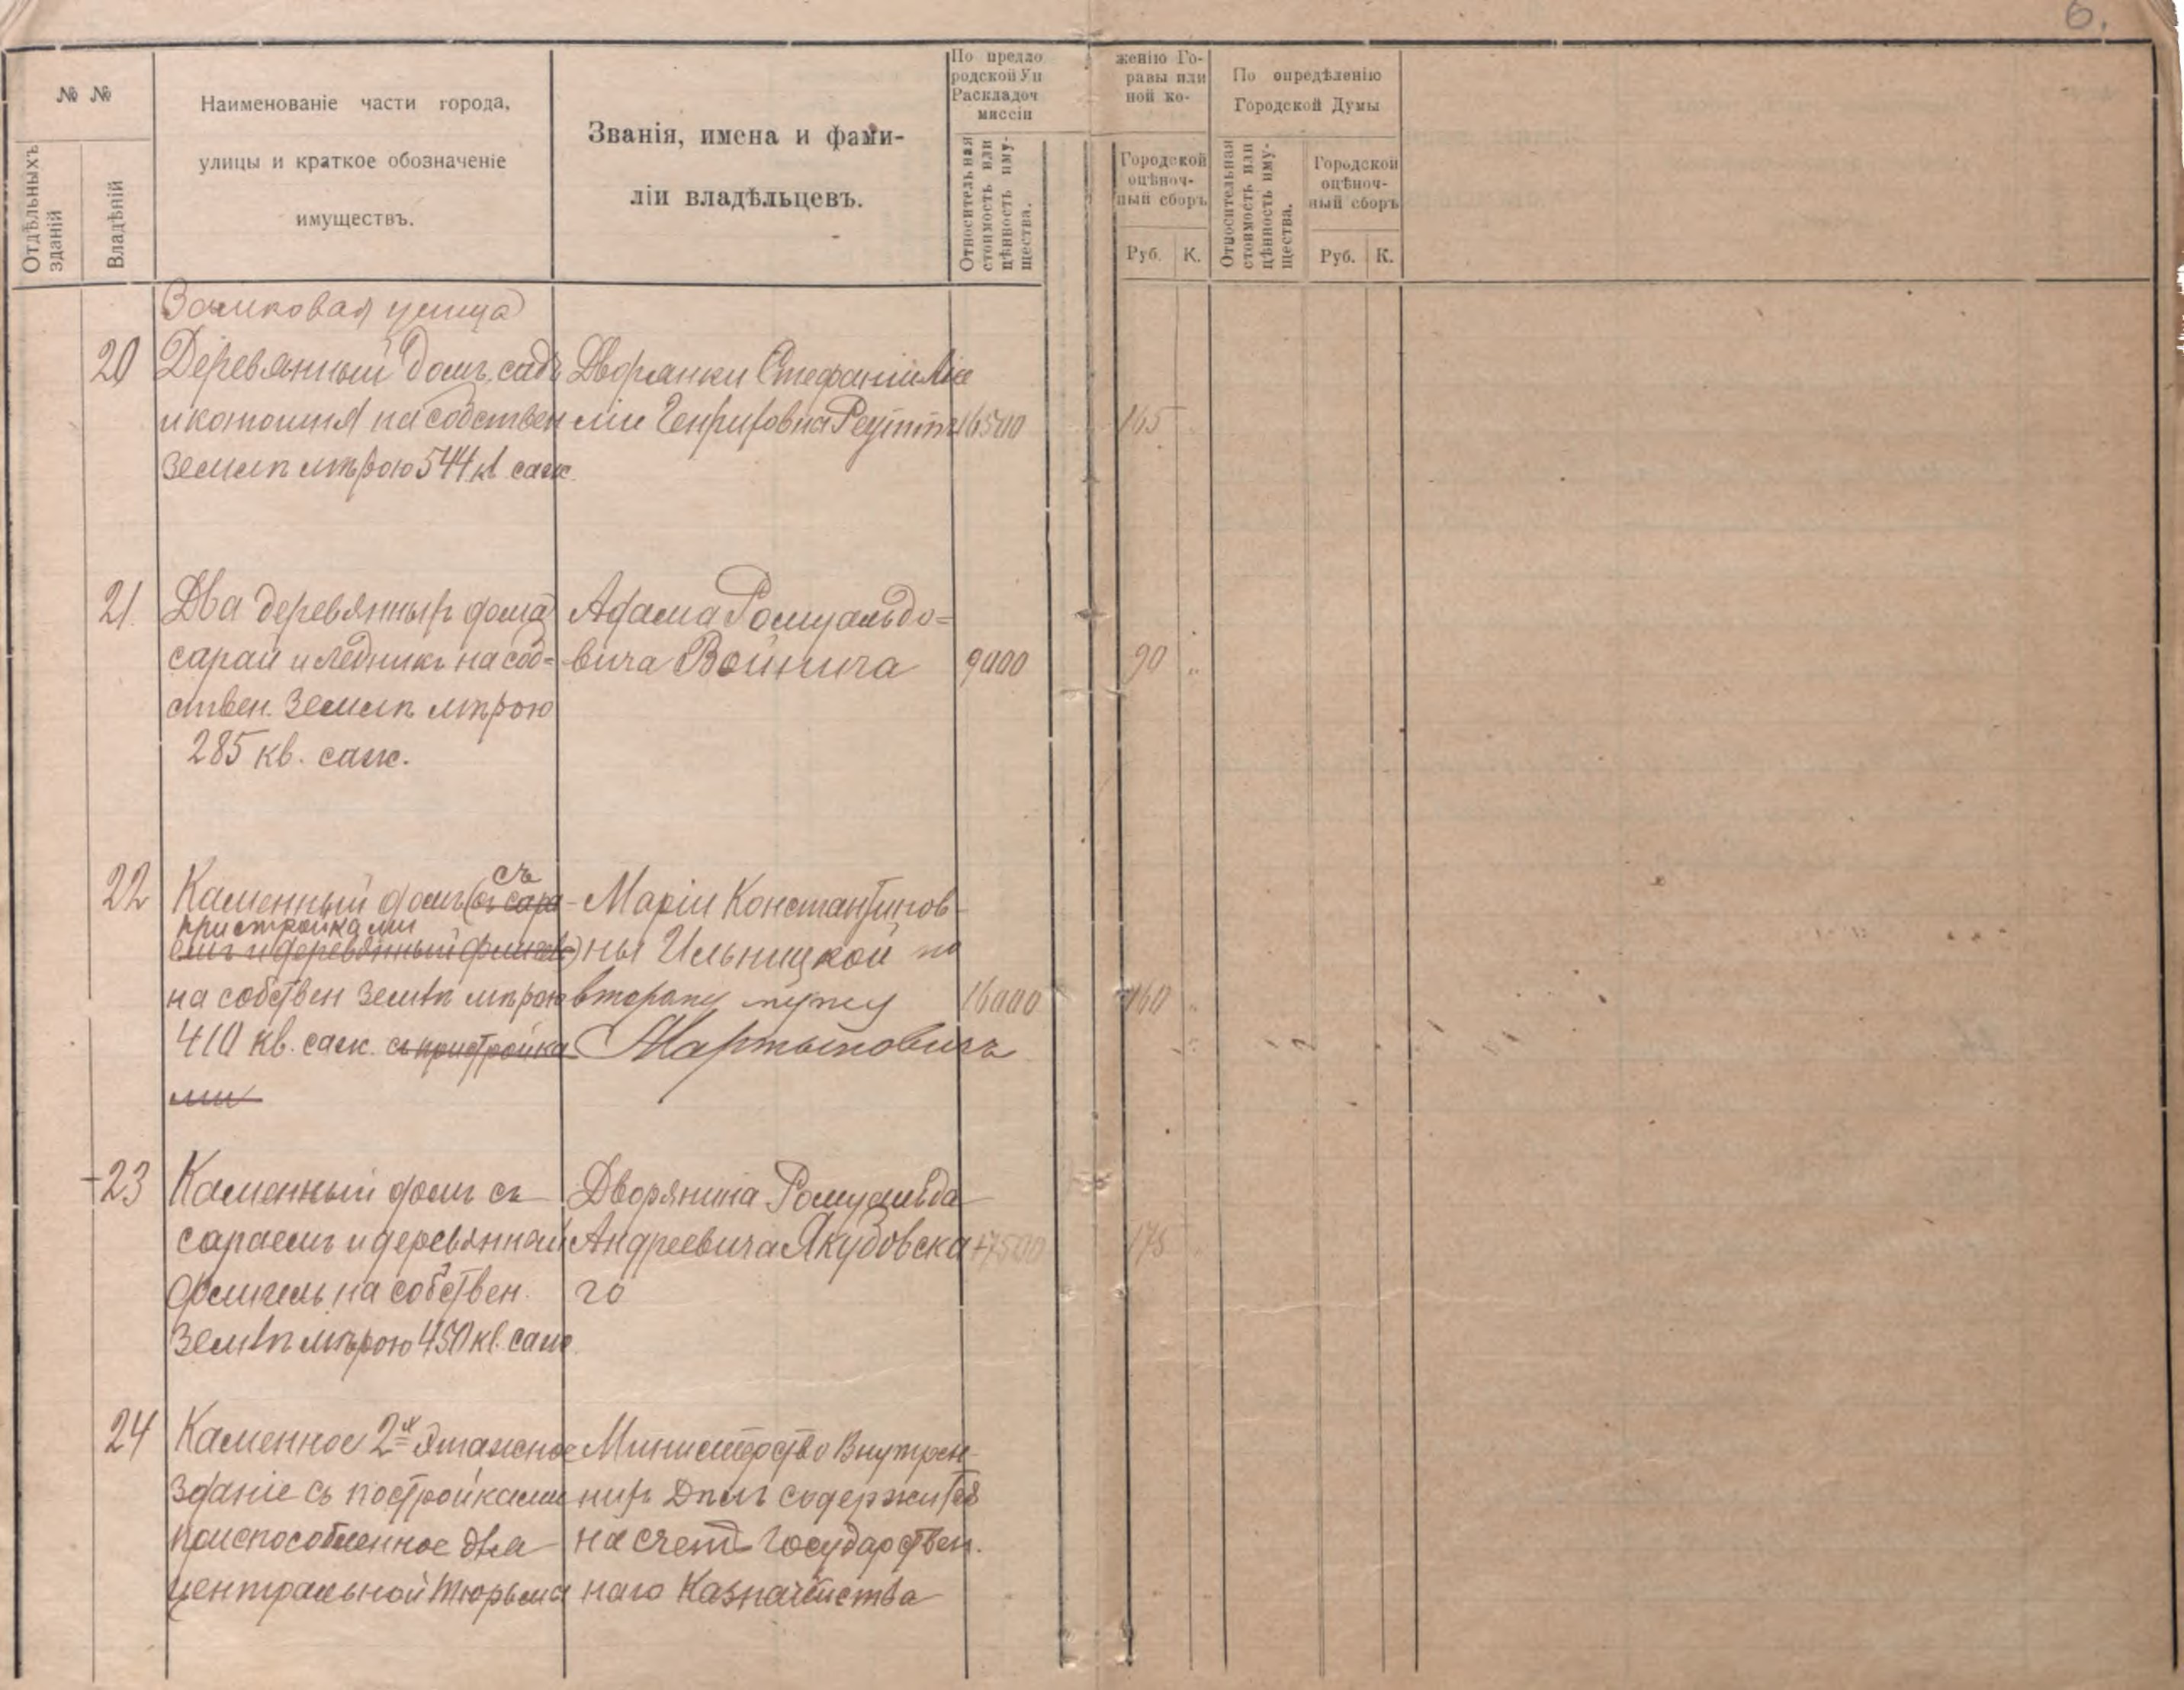 6.
№ №
Отдѣльныхъ зданій
Владѣній
Наименованіе части города,
улицы и краткое обозначеніе
имуществъ.
Званія, имена и фами-
ліи владѣльцевъ.
По предло
родской Уп
Раскладоч
миссіи
Относительная
стоимость или
цѣнность иму-
щества.
женію Го-
равы или
ной ко-
Городской
оцѣноч-
ный сборъ
Руб. К.
По опредѣленію
Городской Думы
Относительная
стоимость или
цѣнность иму-
щества.
Городской
оцѣноч-
ный сборъ
Руб. К.
Замковая улица
20
Деревянный домъ, садъ
и на собствен
землѣ мѣрою 544 кв. саж.
Дворянки Стефаніи Ме
ліи Генриховна Реутта
16500
165
21.
Два деревянныхъ дома
сарай и ледникъ на соб=
ствен. землѣ мѣрою
285 кв. саж.
Адама Ромуальдо=
вича Войнича
9000
90 "
22
Каменный домъ (съ сара-
съ
пристройками
емъ и деревянный флигель)
на собствен землѣ мѣрою
410 кв. саж. съ пристройка
ми
Маріи Константинов-
ны Ильницкой по
второму мужу
Мартыновичъ
16000
160 "
23
Каменный домъ съ
сараемъ и деревянный
флигель на собствен.
землѣ мѣрою 450 кв. саж.
Дворянина Ромуальда
Андреевича Якубовска
го
17500
175 "
24
Каменное 2х этажное
зданіе съ постройками
приспособленное для
центральной тюрьмы
Министерство Внутрен
нихъ Дѣлъ содержится
на счетъ Государствен.
наго Казначейства